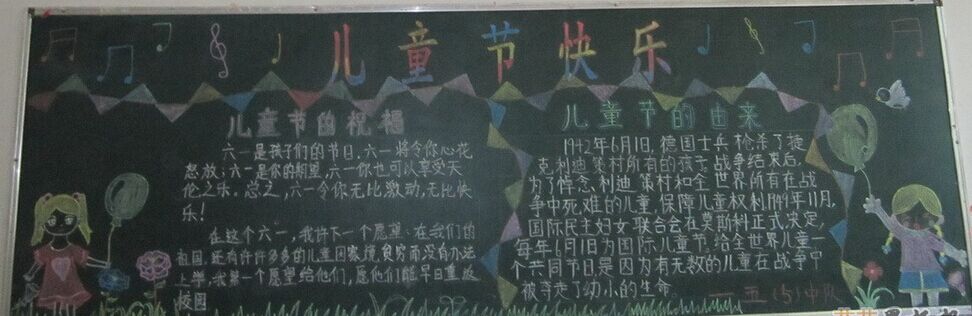 儿童节快乐
儿童节的祝福
六一是孩子们的节日,六一将令你心花
怒放;六一是你的期望,六一你也可以享受天
伦之乐。总之,六一令你无比激动,无比快
乐!
在这个六一,我许下一个愿望:在我们的
祖国,还有许许多多的儿童因家境贫穷而没有办法
上学,我第一个愿望给他们,愿他们能早日重返
校园
儿童节的由来
1942年6月1日,德国士兵枪杀了捷
克利迪策村所有的孩子。战争结束后,
为了悼念利迪策村和全世界所有在战
争中死难的儿童,保障儿童权利,1949年11月,
国际民主妇女联合会在莫斯科正式决定,
每年6月1日为国际儿童节,给全世界儿童一
个共同节日是因为有无数的儿童在战争中
被夺走了幼小的生命。
一五(5)中队